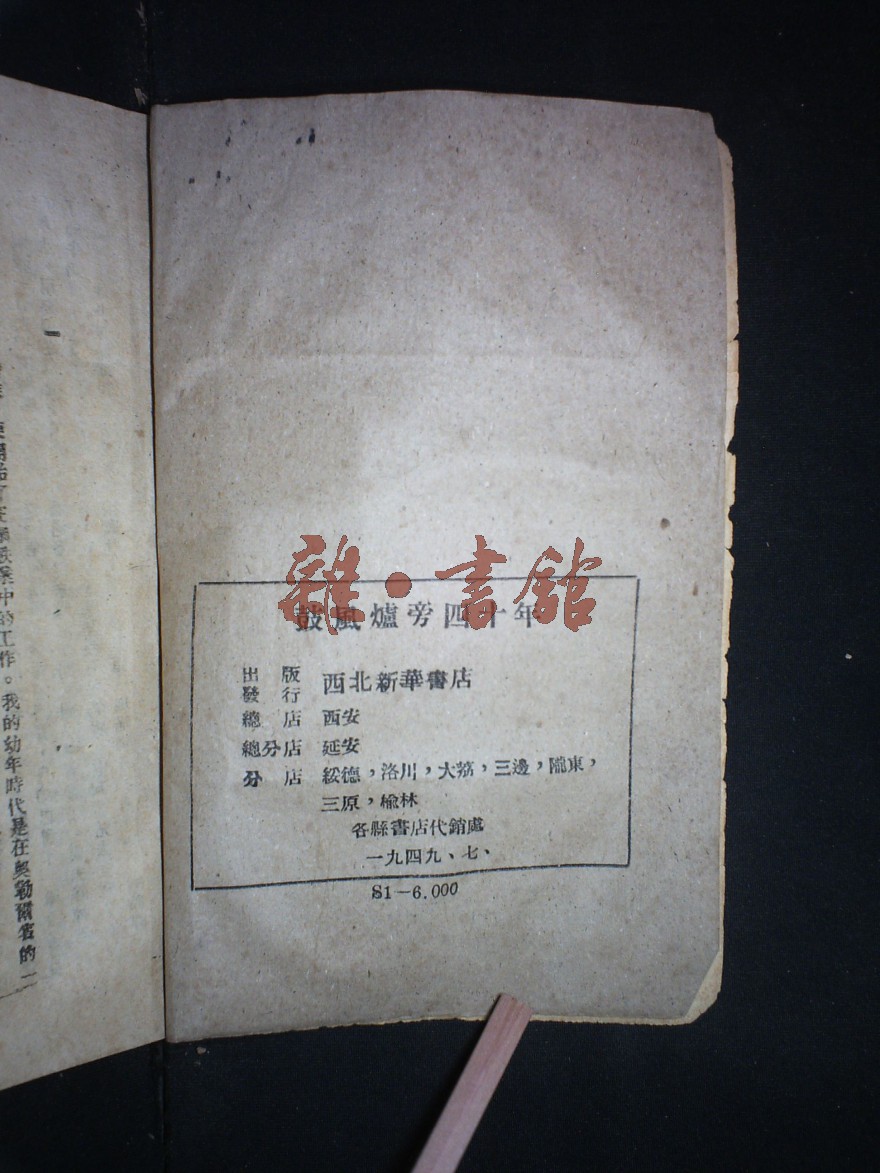 雜·書館
鼓風爐旁四十年
出版
發行 西北新華書店
總店 西安
總分店 延安
分店 綏德,洛川,大荔,三邊,隴東,
三原,榆林
各縣書店代銷處
一九四九、七、
S1—6.000
一
中的工作。我的幼年時代是在奧勒爾省的一